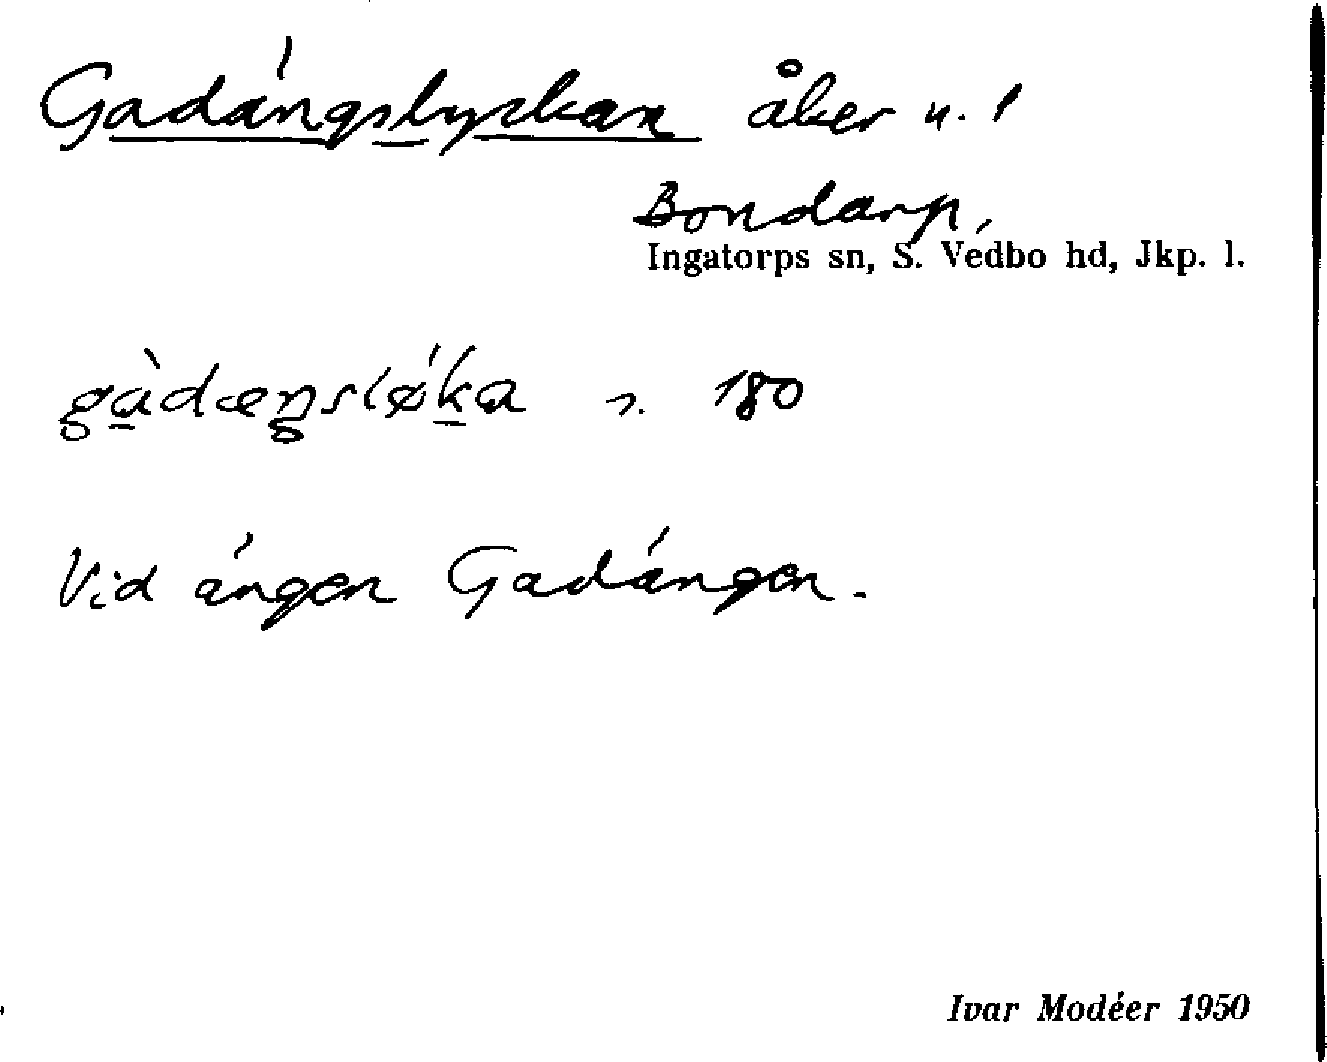 Gadängslyckan åker u. 1
Bondarp,
Ingatorps sn, S. Vedbo hd, Jkp. l.
gàdæŋsløka 180
Vid ängen Gadängen.
Ivar Modéer 1950